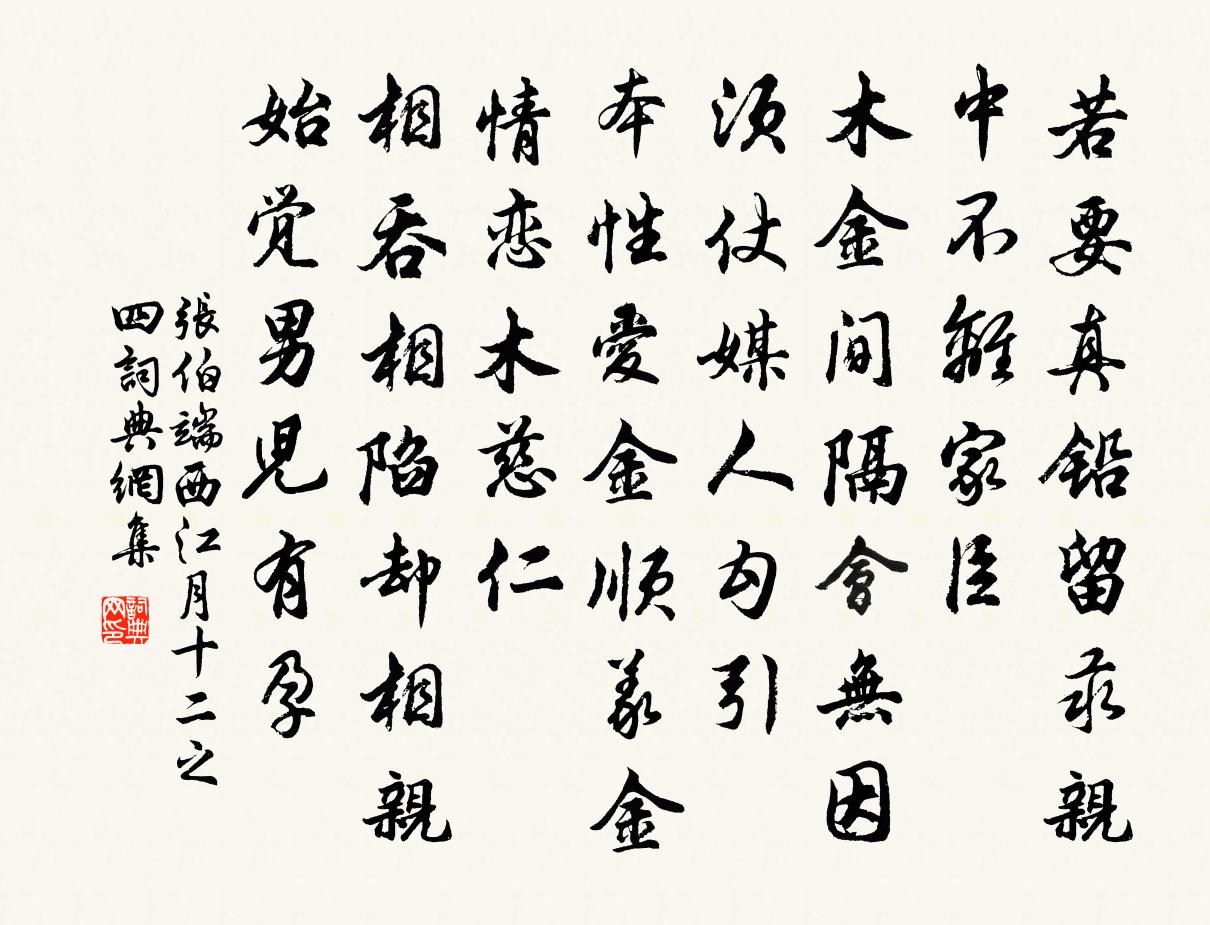 若要真鉛留汞親
中不離家臣
木金間隔會無因
須仗媒人勾引
本性愛金順義金
情恋木慈仁
相吞相陷却相親
始覚男児有孕
張伯端西江月十二之
四詞典網集
詞典网印